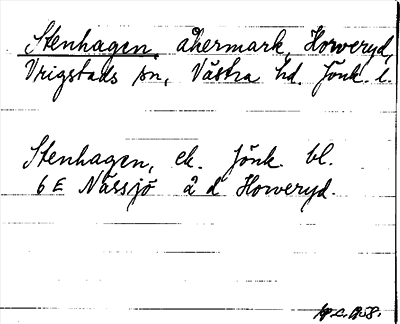 Stenhagen, åkermark, Horveryd,
Vrigstads sn, Västra hd. Jönk. l.
Stenhagen, ek. Jönk. bl.
6 E Nässjö 2 d Horveryd.
1958.